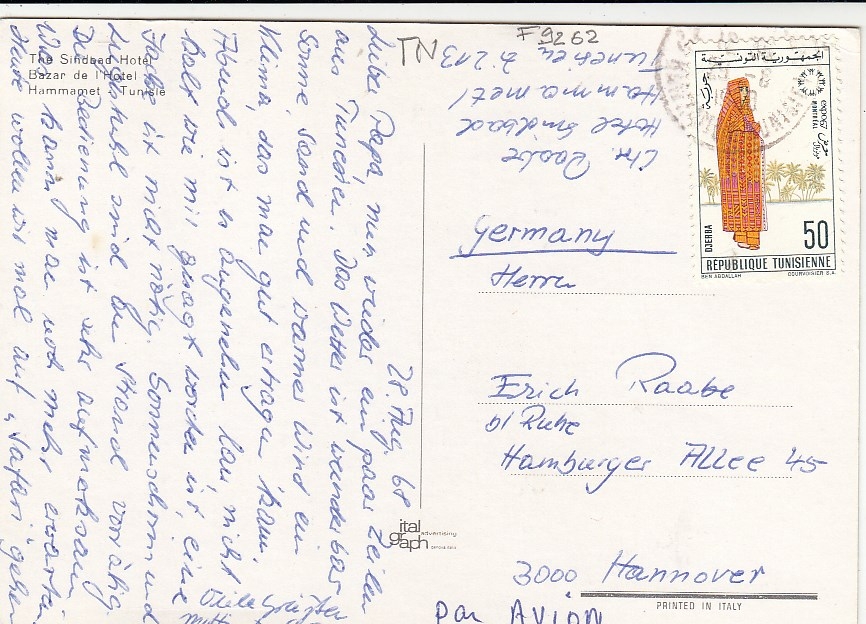 The Sindbad Hotel
Bazar de l'Hotel
Hammamet - Tunisie
28. Aug. 68
Lieber Papa, nun wieder ein paar Zeilen
aus Tunesien. Das Wetter ist wunderbar
Sonne Sand und warmer Wind ein
Klima, das man gut ertragen kann.
Abends ist es angenehm lau, nicht
kalt wie mir gesagt worden ist, eine
Jacke ist nicht nötig. Sonnenschirm und
sind am Strand vorrätig.
Die Bedienung ist sehr aufmerksam
Was kann man noch mehr erwarten
Heute wollen wir mal auf "Safari" gehen
Viele Grüße
TN
F9262
Chr. Raabe
Hotel Sindbad
Hammamet /
Tunesien Zi 213
الجمهورية التونسية
expo67
MONTRÉAL
DJERBA
50
RÉPUBLIQUE TUNISIENNE
BEN ABDALLAH
COURVOISIER S.A.
Germany
Herrn
Erich Raabe
b/ Ruhe
Hamburger Allee 45
3000 Hannover
Par AVION
ital
graph
advertising
PRINTED IN ITALY